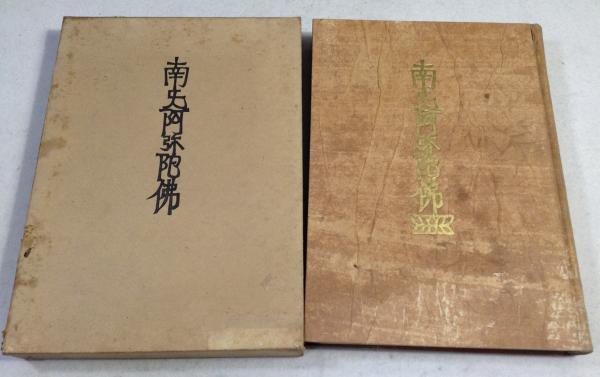 南无阿弥陀佛
南无阿弥陀佛